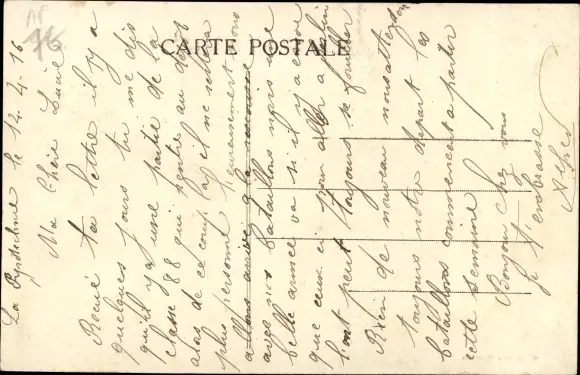 CARTE POSTALE
La Pyrotechnie le 12-4-16
Ma Chère Lucie
Recue ta lettre il y a
quelques jours tu me dis
qu'il y a une partie de la
classe 88 qui rentre au dépôt
alors de ce coup la il ne restera
plus personne
allons arrive
avec nos bataillons mais une
belle armée va si il y a encore
que ceux ci pour aller a
font peut toujours se fouiller
Rien de nouveau nous attendons
toujours notre depart les
bataillons commencent a partir
cette semaine
Bonjour chez vous
je t'embrasse